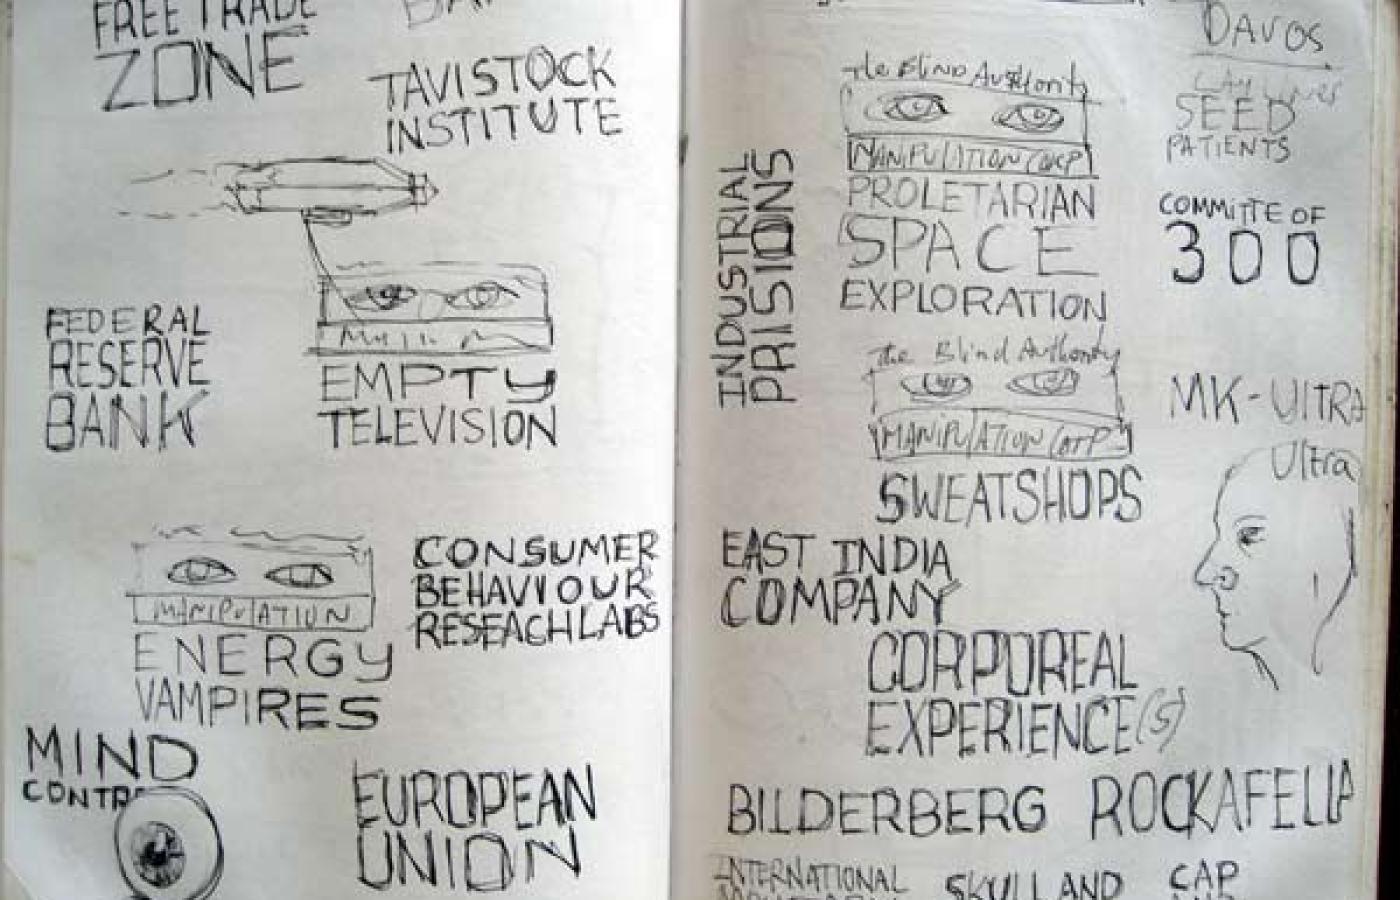 FREE TRADE
ZONE
TAVISTOCK
INSTITUTE
FEDERAL
RESERVE
BANK
EMPTY
TELEVISION
MANIPULATION
ENERGY
VAMPIRES
CONSUMER
BEHAVIOUR
RESEACH LABS
MIND
CONTR
EUROPEAN
UNION
INDUSTRIAL
PRISIONS
The Blind Authority
MANIPULATION CORP
PROLETARIAN
SPACE
EXPLORATION
the Blind Authority
MANIPULATION CORP
SWEATSHOPS
EAST INDIA
COMPANY
CORPOREAL
EXPERIENCE(S)
DAVOS
SEED
PATIENTS
COMMITTE OF
300
MK-UlTRA
Ultra
BILDERBERG
ROCKAFELLA
INTERNATIONAL
SKULL AND
CAP